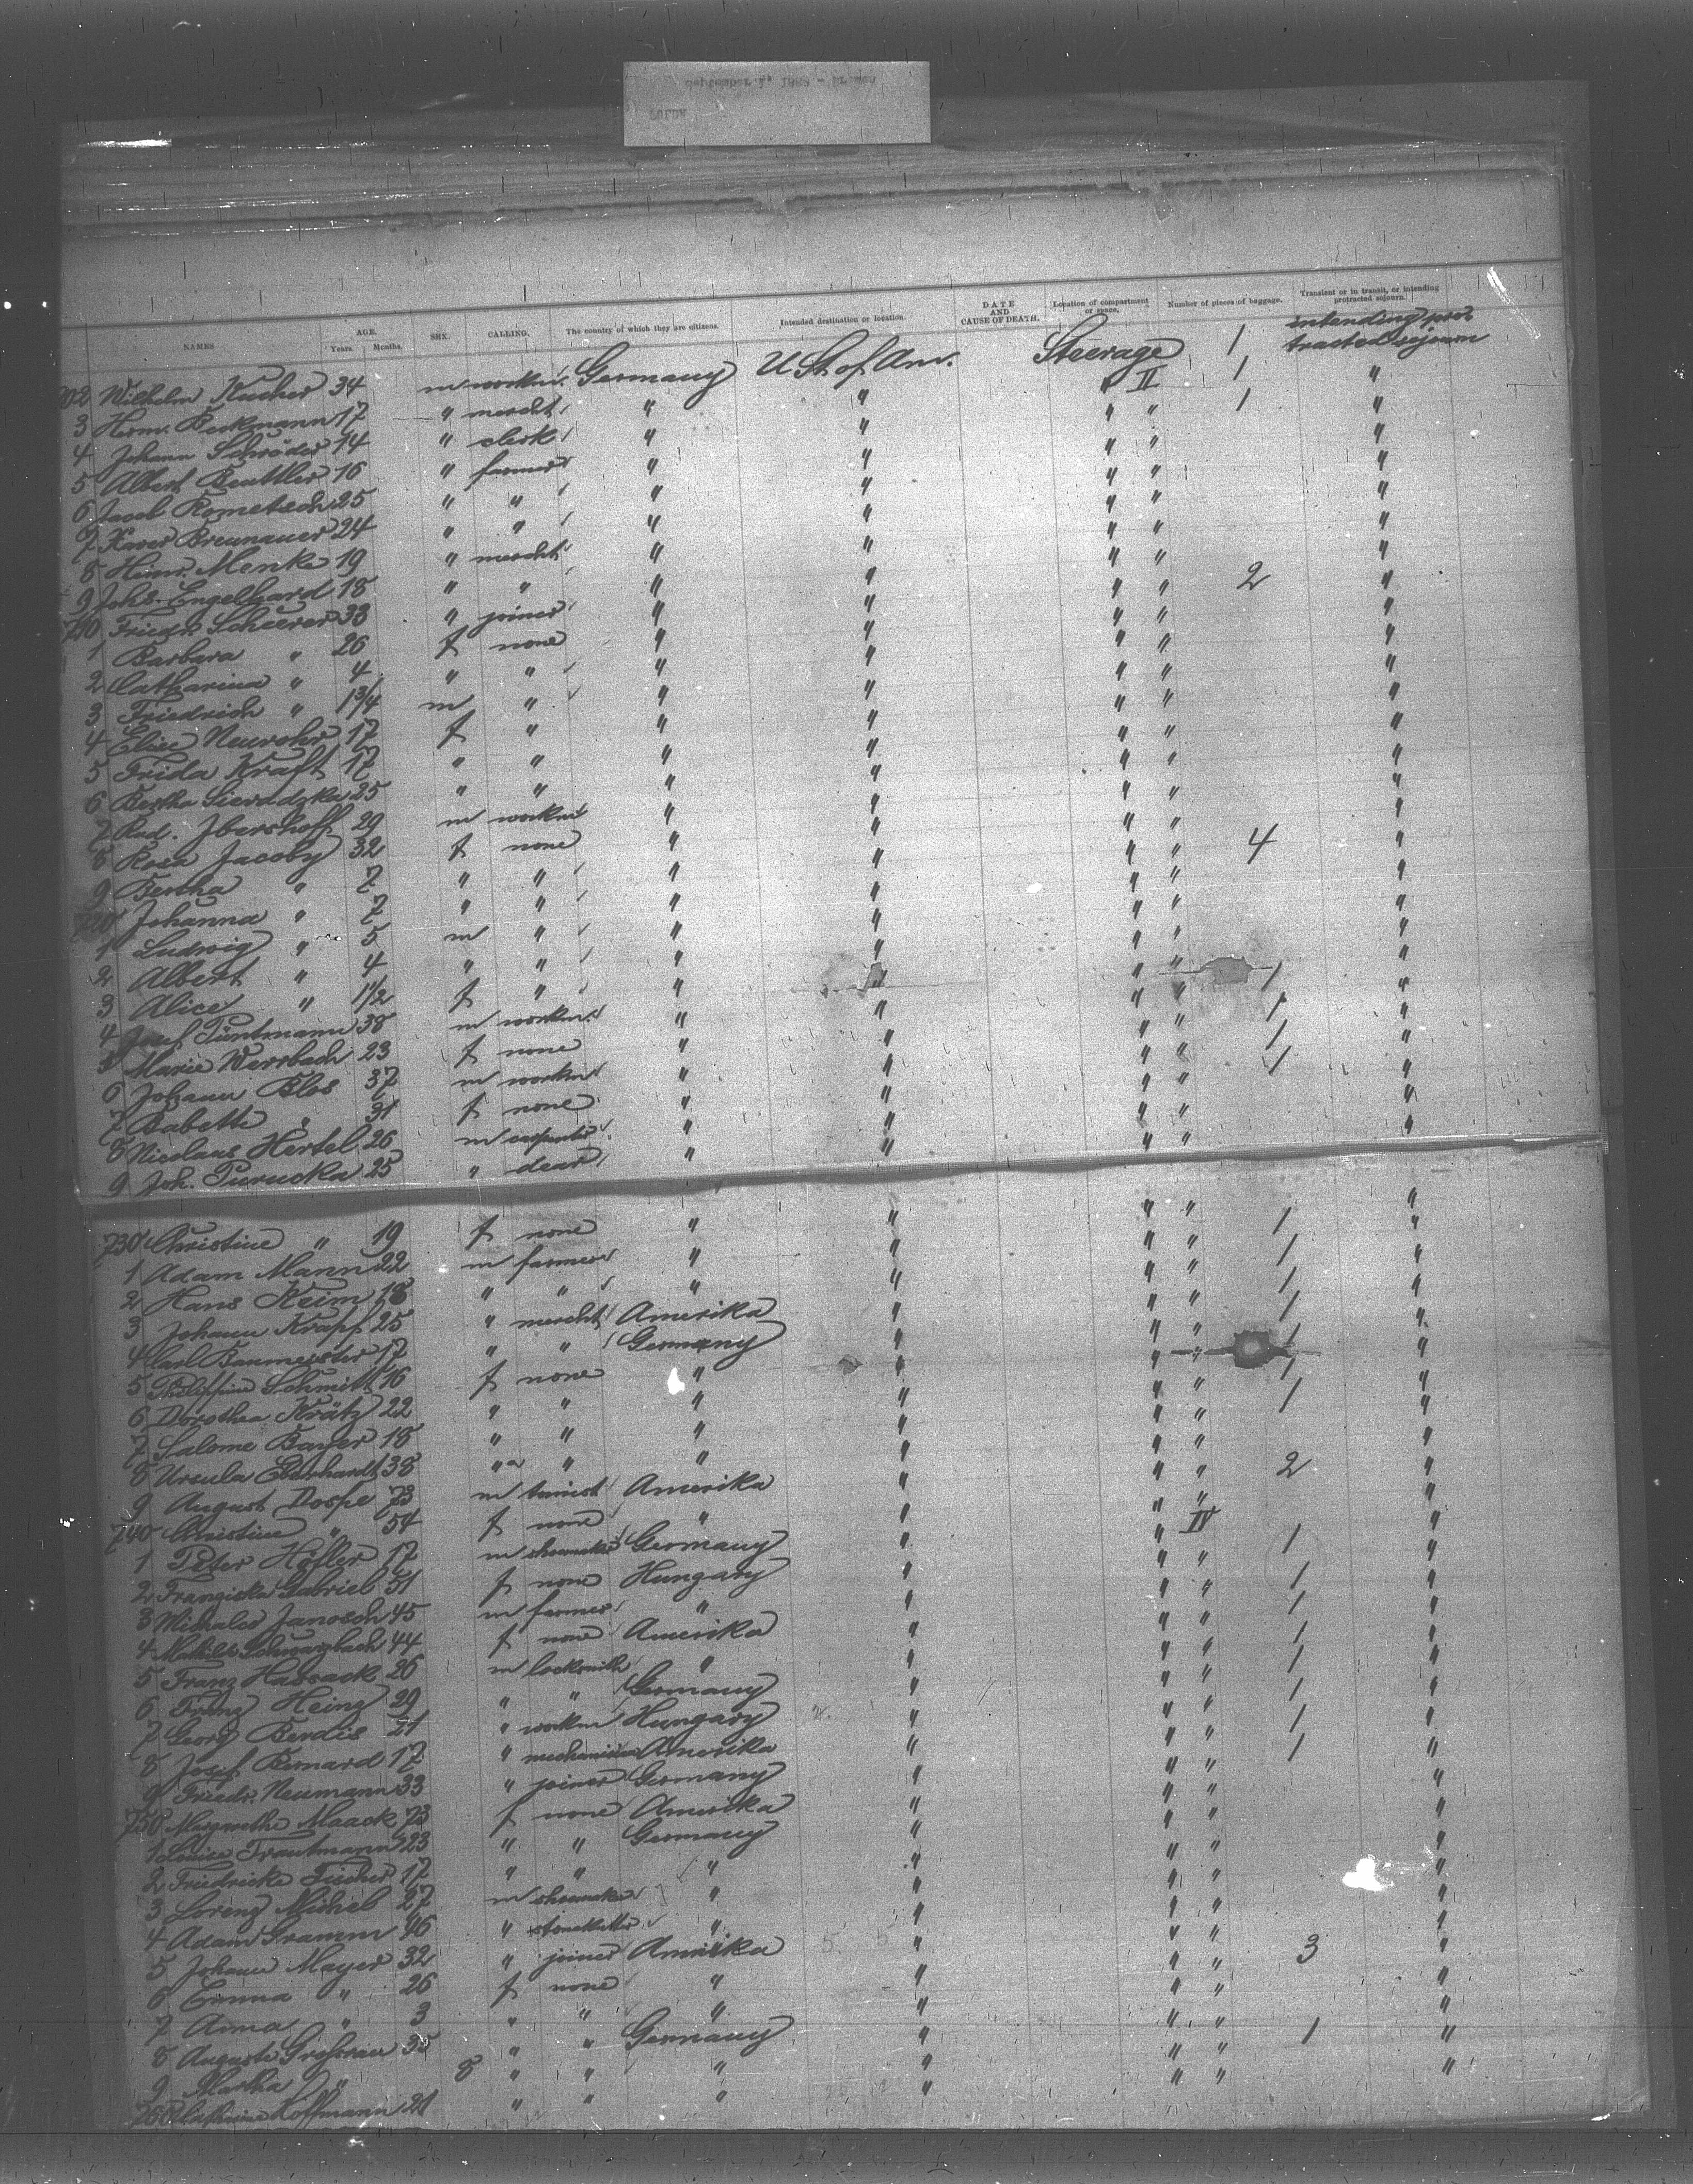 NAMES AGE. Years. Months. SEX. CALLING. The country of which they are citizens. Intended destination or location. DATE AND CAUSE OF DEATH. Location of compartment or space. Number of pieces of baggage. Transient or in transit, or intending protracted sojourn.
Wilhelm Kucher 34 m workm. Germany U St. of Am. Steerage II 1 intending protracted sojourn
3 Herm. Beckmann 17 " mercht " " " " 1 "
4 Johann Schröder 14 " clerk " " " " 1 "
5 Albert Beuttler 16 " farmer " " " " "
6 Jacob Rometsch 25 " " " " " " "
7 Xaver Breunauer 24 " " " " " " "
8 Heinr. Menke 19 " mercht " " " " "
9 Johs. Engelhard 18 " " " " " " "
710 Friedr. Scheerer 33 " joiner " " " " 2 "
1 Barbara " 26 f none " " " " "
2 Catharina " 4 " " " " " " "
3 Friedrich " 1 3/4 m " " " " " "
4 Elise Neurohr 17 f " " " " " "
5 Frida Kraft 17 " " " " " " "
6 Bertha Sieradzka 25 " " " " " " "
7 Rud. Ibershoff 29 m workm " " " " "
8 Rosa Jacoby 32 f none " " " " 4 "
9 Bertha " 7 " " " " " " "
720 Johanna " 7 " " " " " " "
1 Ludwig " 5 m " " " " " "
2 Albert " 4 " " " " " " "
3 Alice " 1 1/2 f " " " " " "
4 Josef Püntmann 38 m workm. " " " " 1 "
5 Marie Wersbach 23 f none " " " " 1 "
6 Johann Blos 37 m workm " " " " 1 "
7 Babette " 31 f none " " " " 1 "
8 Nicolaus Hertel 26 m carpenter " " " " "
9 Joh. Purucka 25 " " " " " "
730 Christine " 19 f none " " " " 1 "
1 Adam Mann 22 m farmer " " " " 1 "
2 Hans Keim 18 " " " " " " 1 "
3 Johann Krapf 25 " mercht Amerika " " " 1 "
4 Carl Baumeister 17 " " Germany " " " 1 "
5 Philippine Schmitt 16 f none " " " " 1 "
6 Dorothea Krätz 22 " " " " " " 1 "
7 Salome Bayer 18 " " " " " " "
8 Ursula Eberhardt 38 " " " " " " "
9 August Dospe 73 m turist Amerika " " " 2 "
740 Christine " 54 f none " " " " "
1 Peter Höfler 17 m shoemaker Germany " " IV 1 "
2 Franziska Gabriel 51 f none Hungary " " " 1 "
3 Michalos Janosch 45 m farmer " " " " 1 "
4 Mathilde Schwarzbach 44 f none Amerika " " " 1 "
5 Franz Hassack 26 m locksmith " " " " 1 "
6 Franz Heinz 29 " " Germany " " " 1 "
7 Georg Berdis 21 " workm Hungary " " " 1 "
8 Josef Bernard 17 " Amerika " " " 1 "
9 Friedr. Neumann 33 " joiner Germany " " " "
750 Margarethe Maack 73 f none Amerika " " " "
1 Louise Trautmann 23 " " Germany " " " "
2 Friedricke Fischer 17 " " " " " " "
3 Lorenz Michel 27 m shoemaker " " " " "
4 Adam Gramm 46 " stonekutter " " " " "
5 Johann Mayer 32 " joiner Amerika " " " 3 "
6 Emma " 26 f none " " " " "
7 Anna " 3 " " " " " " "
8 Auguste 35 " " Germany " " " 1 "
9 Martha " 8 " " " " " " "
760 Catharine Hoffmann 21 " " " "